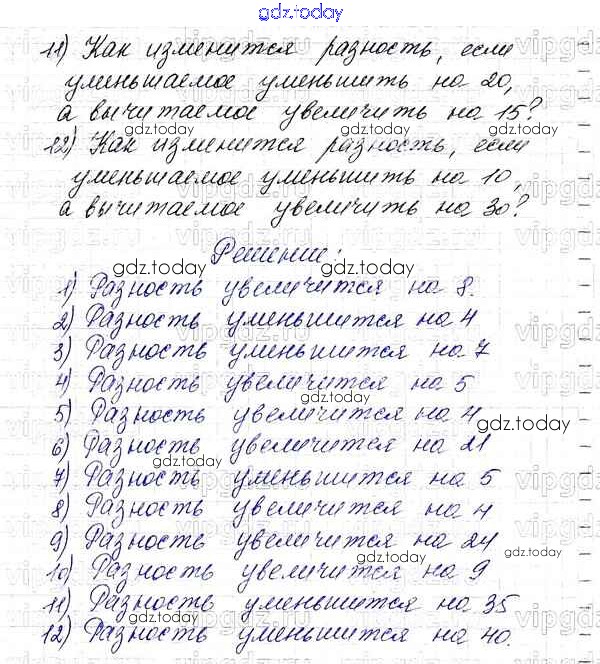 gdz.today
11) Как изменится разность, если
уменьшаемое уменьшить на 20,
а вычитаемое увеличить на 15?
gdz.today gdz.today
12) Как изменится разность, если
уменьшаемое уменьшить на 10,
gdz.today gdz.today
а вычитаемое увеличить на 30?
Решение:
gdz.today gdz.today
1) Разность увеличится на 8.
2) Разность уменьшится на 4
gdz.today gdz.today
3) Разность уменьшится на 7
4) Разность увеличится на 5
gdz.today gdz.today
5) Разность увеличится на 4
6) Разность увеличится на 21
gdz.today gdz.today
7) Разность уменьшится на 5
8) Разность увеличится на 4
gdz.today gdz.today
9) Разность увеличится на 24
gdz.today gdz.today gdz.today
10) Разность увеличится на 9
11) Разность уменьшится на 35
gdz.today gdz.today
12) Разность уменьшится на 40.